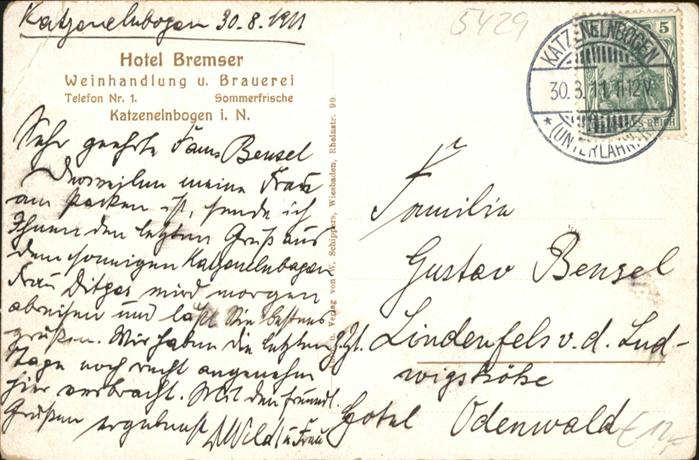 Katzenelnbogen 30.8.1911
5429
Hotel Bremser
Weinhandlung u. Brauerei
Telefon Nr. 1. Sommerfrische
Katzenelnbogen i. N.
Sehr geehrte Fam. Bensel
Derweilen meine Frau
am packen ist, sende ich
Ihnen den letzten Gruß aus
dem sonnigen Katzenelnbogen
Frau Ditges wird morgen
abreisen und läßt Sie bestens
grüßen. Wir haben die letzten
Tage noch recht angenehm
hier verbracht. Mit den freundl.
Grüßen ergebenst Wild u Frau
u. Verlag von W. Schippers, Wiesbaden, Rheinstr. 99.
KATZENELNBOGEN
30.8.11. 11-12V.
* (UNTERLAHN
5
Familie
Gustav Bensel
z.Zt. Lindenfels v. d. Lud-
wigshöhe
Hotel Odenwald
€ 12,-